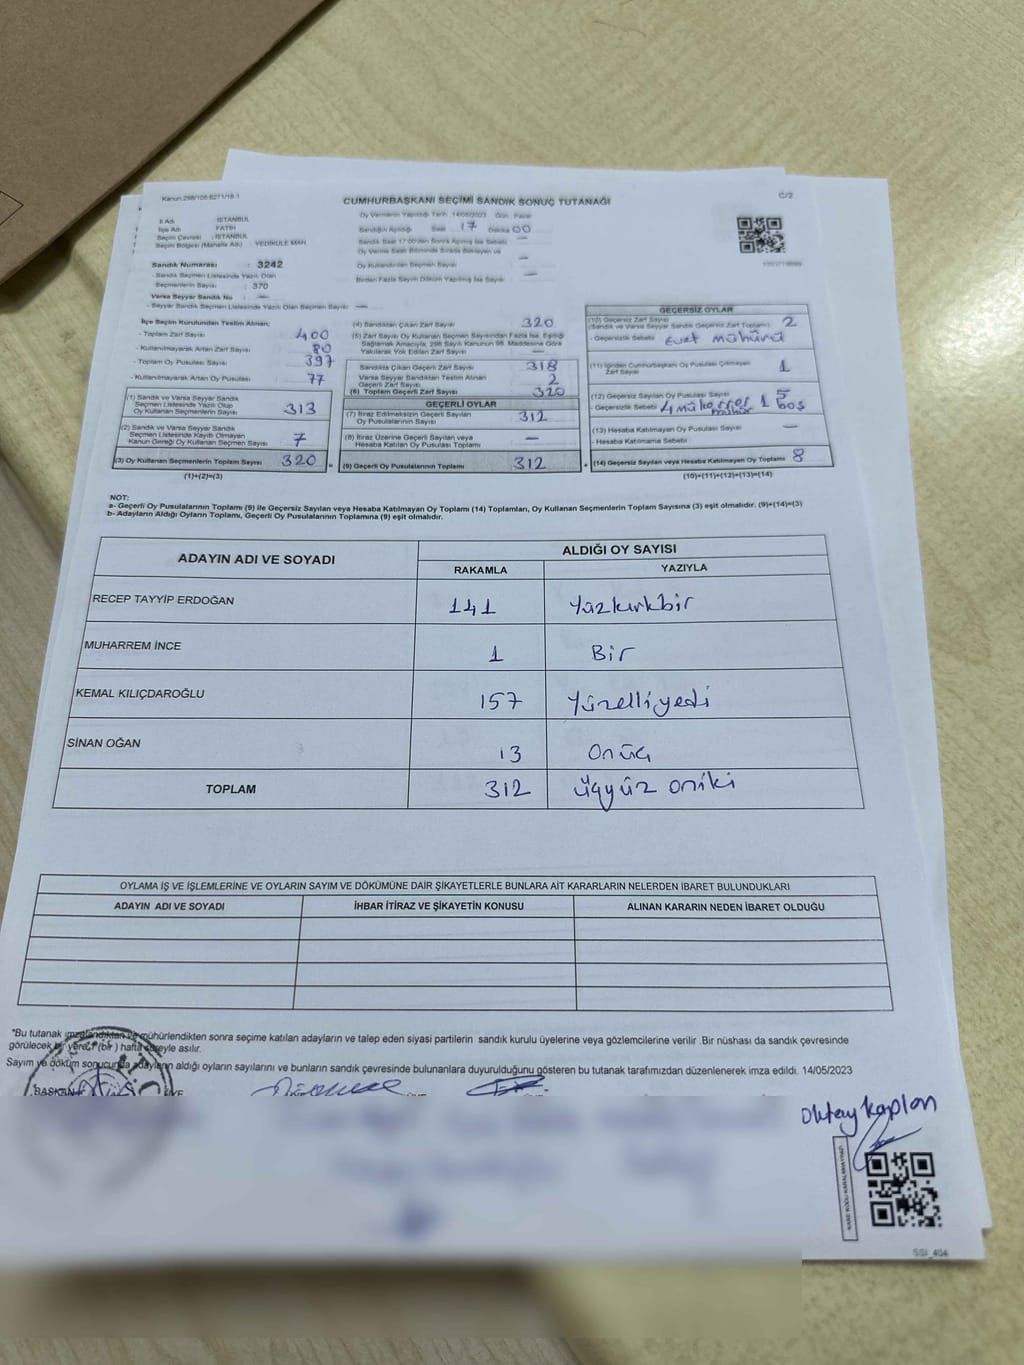 Kanun:298/105-6271/16-1
CUMHURBAŞKANI SEÇİMİ SANDIK SONUÇ TUTANAĞI
C/2
İl Adı : İSTANBUL
İlçe Adı : FATİH
Seçim Çevresi : İSTANBUL
Seçim Bölgesi (Mahalle Adı) : YEDİKULE MAH
Sandık Numarası : 3242
- Sandık Seçmen Listesinde Yazılı Olan
Seçmenlerin Sayısı : 370
Varsa Seyyar Sandık No : —
- Seyyar Sandık Seçmen Listesinde Yazılı Olan Seçmen Sayısı : —
Oy Vermenin Yapıldığı Tarih: 14/05/2023 Gün: Pazar
Sandığın Açıldığı Saat 17 Dakika 00
Sandık Saat 17:00'den Sonra Açılmış İse Sebebi —
Oy Verme Saati Bitiminde Sırada Bekleyen ve
Oy Kullandırılan Seçmen Sayısı —
Birden Fazla Sayım Döküm Yapılmış İse Sayısı —
İlçe Seçim Kurulundan Teslim Alınan;
- Toplam Zarf Sayısı 400
- Kullanılmayarak Artan Zarf Sayısı 80
- Toplam Oy Pusulası Sayısı 397
- Kullanılmayarak Artan Oy Pusulası 77
(1) Sandık ve Varsa Seyyar Sandık
Seçmen Listesinde Yazılı Olup
Oy Kullanan Seçmenlerin Sayısı 313
(2) Sandık ve Varsa Seyyar Sandık
Seçmen Listesinde Kayıtlı Olmayan
Kanun Gereği Oy Kullanan Seçmen Sayısı 7
(3) Oy Kullanan Seçmenlerin Toplam Sayısı 320
(1)+(2)=(3)
(4) Sandıktan Çıkan Zarf Sayısı 320
(5) Zarf Sayısı Oy Kullanan Seçmen Sayısından Fazla İse, Eşitliği
Sağlamak Amacıyla, 298 Sayılı Kanunun 98. Maddesine Göre
Yakılarak Yok Edilen Zarf Sayısı —
Sandıkta Çıkan Geçerli Zarf Sayısı 318
Varsa Seyyar Sandıktan Teslim Alınan
Geçerli Zarf Sayısı 2
(6) Toplam Geçerli Zarf Sayısı 320
GEÇERLİ OYLAR
(7) İtiraz Edilmeksizin Geçerli Sayılan
Oy Pusulalarının Sayısı 312
(8) İtiraz Üzerine Geçerli Sayılan veya
Hesaba Katılan Oy Pusulası Toplamı —
(9) Geçerli Oy Pusulalarının Toplamı 312
GEÇERSİZ OYLAR
(10) Geçersiz Zarf Sayısı
(Sandık ve Varsa Seyyar Sandık Geçersiz Zarf Toplamı) 2
- Geçersizlik Sebebi Evet mühürü
(11) İçinden Cumhurbaşkanı Oy Pusulası Çıkmayan
Zarf Sayısı 1
(12) Geçersiz Sayılan Oy Pusulası Sayısı 5
- Geçersizlik Sebebi 4 mükerrer mühür 1 boş
(13) Hesaba Katılmayan Oy Pusulası Sayısı —
- Hesaba Katılmama Sebebi
(14) Geçersiz Sayılan veya Hesaba Katılmayan Oy Toplamı 8
(10)+(11)+(12)+(13)=(14)
NOT:
a- Geçerli Oy Pusulalarının Toplamı (9) ile Geçersiz Sayılan veya Hesaba Katılmayan Oy Toplamı (14) Toplamları, Oy Kullanan Seçmenlerin Toplam Sayısına (3) eşit olmalıdır. (9)+(14)=(3)
b- Adayların Aldığı Oyların Toplamı, Geçerli Oy Pusulalarının Toplamına (9) eşit olmalıdır.
ADAYIN ADI VE SOYADI
ALDIĞI OY SAYISI
RAKAMLA YAZIYLA
RECEP TAYYİP ERDOĞAN 141 Yüzkırkbir
MUHARREM İNCE 1 Bir
KEMAL KILIÇDAROĞLU 157 Yüzelliyedi
SİNAN OĞAN 13 Onüç
TOPLAM 312 Üçyüz oniki
OYLAMA İŞ VE İŞLEMLERİNE VE OYLARIN SAYIM VE DÖKÜMÜNE DAİR ŞİKAYETLERLE BUNLARA AİT KARARLARIN NELERDEN İBARET BULUNDUKLARI
ADAYIN ADI VE SOYADI İHBAR İTİRAZ VE ŞİKAYETİN KONUSU ALINAN KARARIN NEDEN İBARET OLDUĞU
"Bu tutanak imzalandıktan ve mühürlendikten sonra seçime katılan adayların ve talep eden siyasi partilerin sandık kurulu üyelerine veya gözlemcilerine verilir. Bir nüshası da sandık çevresinde
görülecek bir yere,1 (bir ) hafta süreyle asılır.
Sayım ve döküm sonucunda adayların aldığı oyların sayılarını ve bunların sandık çevresinde bulunanlara duyurulduğunu gösteren bu tutanak tarafımızdan düzenlenerek imza edildi. 14/05/2023
BAŞKAN
Oktay kaplan
SSI_404